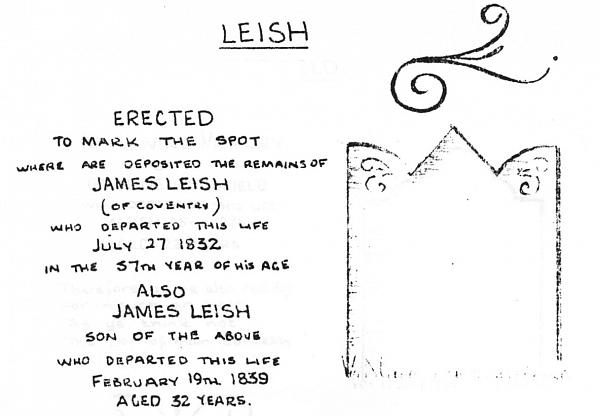 LEISH
ERECTED
TO MARK THE SPOT
WHERE ARE DEPOSITED THE REMAINS OF
JAMES LEISH
(OF COVENTRY)
WHO DEPARTED THIS LIFE
JULY 27 1832
IN THE 57TH YEAR OF HIS AGE
ALSO
JAMES LEISH
SON OF THE ABOVE
WHO DEPARTED THIS LIFE
FEBRUARY 19TH 1839
AGED 32 YEARS.